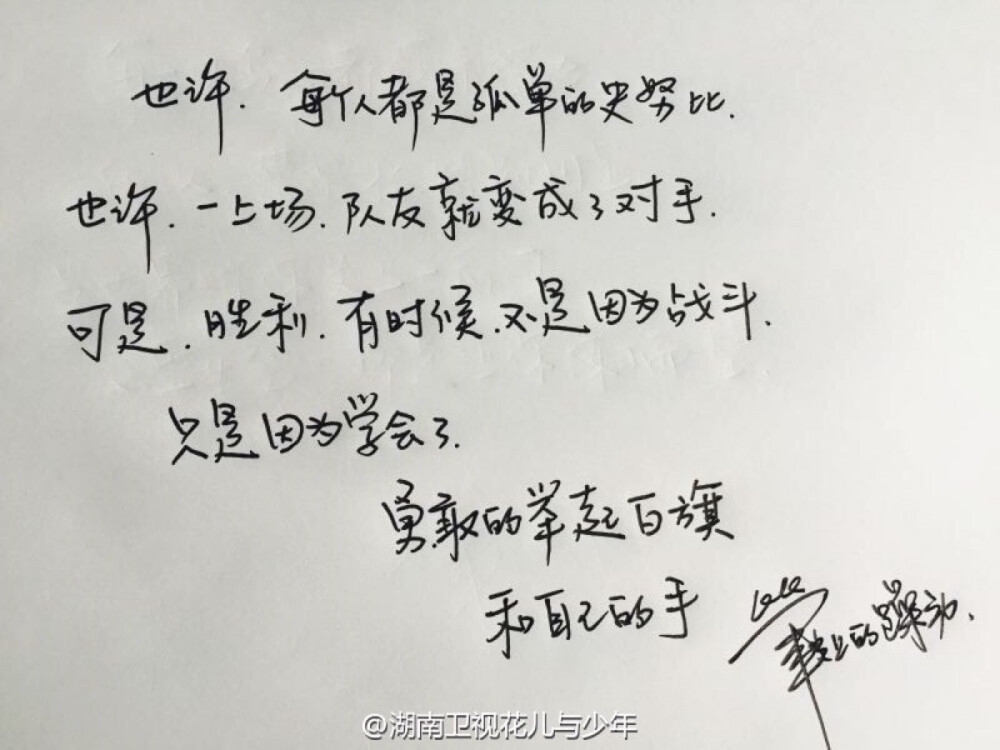 也许. 每个人都是孤单的史努比.
也许. 一上场. 队友就变成了对手.
可是. 胜利. 有时候. 不是因为战斗.
只是因为学会了.
勇敢的举起白旗
和自己的手
上的躁动.
@湖南卫视花儿与少年